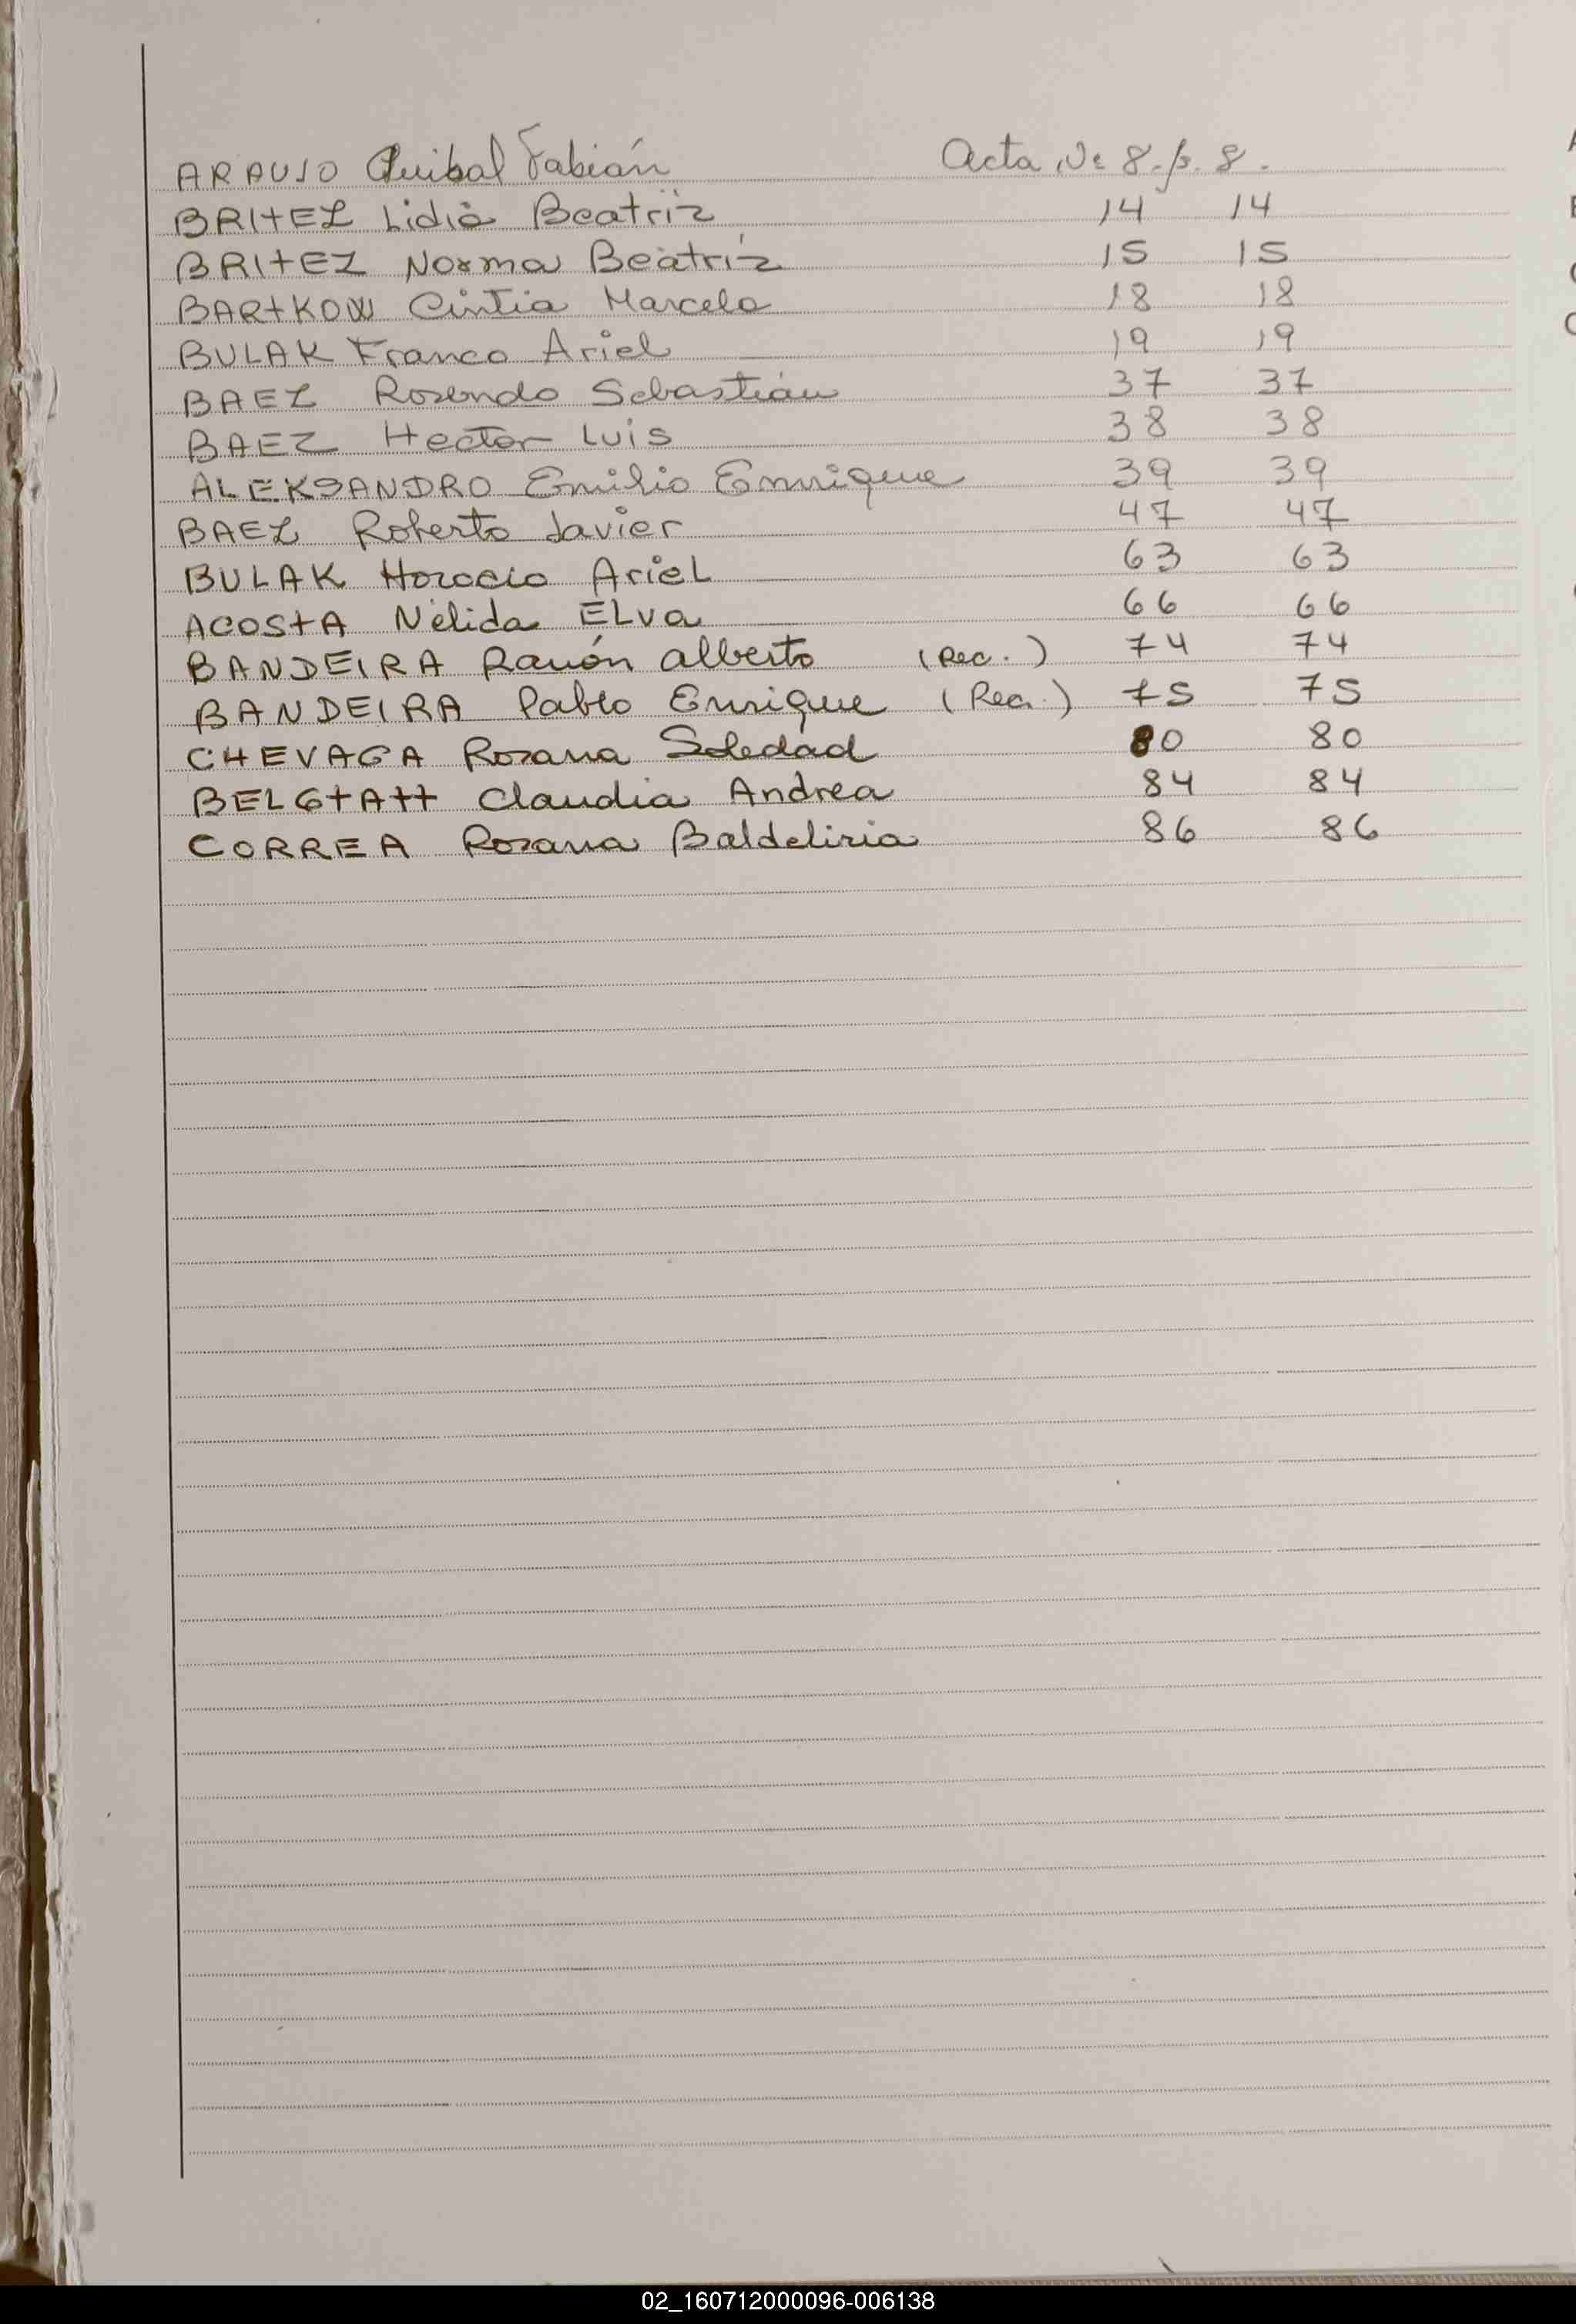 ARAUJO Anibal Fabián Acta Nº 8. p. 8.
BRITEZ Lidia Beatriz 14 14
BRITEZ Norma Beatriz 15 15
BARTKOW Cintia Marcela 18 18
BULAK Franco Ariel 19 19
BAEZ Rosendo Sebastián 37 37
BAEZ Hector Luis 38 38
ALEKSANDRO Emilio Enrique 39 39
BAEZ Roberto Javier 47 47
BULAK Horacio Ariel 63 63
ACOSTA Nélida Elva 66 66
BANDEIRA Ramón Alberto (Rec.) 74 74
BANDEIRA Pablo Enrique (Rec.) 75 75
CHEVAGA Rosana Soledad 80 80
BELGTATT Claudia Andrea 84 84
CORREA Rosana Baldeliria 86 86
02_160712000096-006138